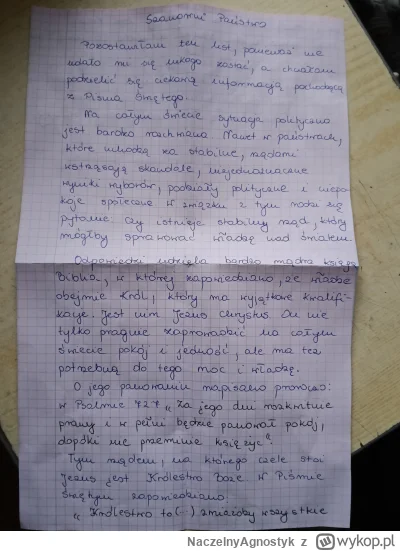 Szanowni Państwo
Pozostawiłam ten list, ponieważ nie
udało mi się nikogo zastać, a chciałam
podzielić się ciekawą informacją pochodzącą
z Pisma Świętego.
Na całym świecie sytuacja polityczna
jest bardzo rozchwiana Nawet w państwach,
które uchodzą za stabilne, rządami
wstrząsają skandale, niejednoznaczne
wyniki wyborów, podziały polityczne i niepo-
koje społeczne W związku z tym rodzi się
pytanie: czy istnieje stabilny rząd, który
mógłby sprawować władzę nad światem.
Odpowiedzi udziela bardzo mądra księga
Biblia, w której zapowiedziano, że władzę
obejmie Król, który ma wyjątkowe kwalifi-
kacje. Jest nim Jezus Chrystus On nie
tylko pragnie zaprowadzić na całym
świecie pokój i jedność, ale ma też
potrzebną do tego moc i władzę.
O jego panowaniu napisano proroczo:
w Psalmie 72:7 „Za jego dni rozkwitnie
prawy i w pełni będzie panował pokój,
dopóki nie przeminie księżyc".
Tym rządem, na którego czele stoi
Jezus jest Królestwo Boże W Piśmie
Świętym zapowiedziano:
„Królestwo to (-) zmiażdży wszystkie
NaczelnyAgnostyk z wykop.pl